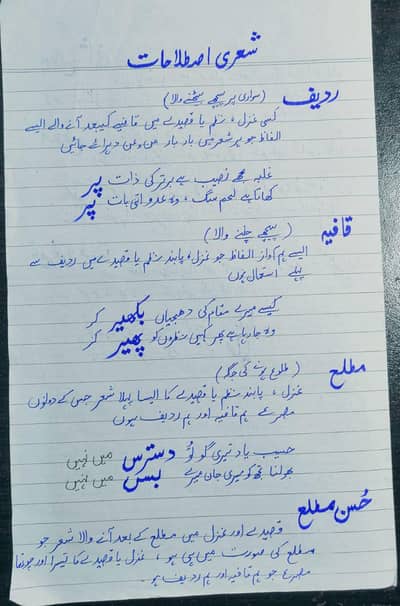 شعری اصطلاحات
ردیف (سواری پر پیچھے بیٹھنے والا)
کسی غزل، نظم یا قصیدے میں قافیے کے بعد آنے والے ایسے
الفاظ جو ہر شعر میں بار بار من و عن دہرائے جائیں
غلبہ مجھے نصیب ہے برتر کی ذات پر
کھاتا ہے لحم سگ، وہ عدو اتنی بات پر
قافیہ (پیچھے چلنے والا)
ایسے ہم آواز الفاظ جو غزل، پابند نظم یا قصیدے میں ردیف سے
پہلے استعمال ہوں
کیسے میرے مقام کی دھجیاں بکھیر کر
وہ جا رہا ہے پھر کہیں نظروں کو پھیر کر
مطلع (طلوع ہونے کی جگہ)
غزل، پابند نظم یا قصیدے کا ایسا پہلا شعر جس کے دونوں
مصرعے ہم قافیہ اور ہم ردیف ہوں
حبیب یاد تیری گو تُو دسترس میں نہیں
بھولنا تجھ کو میری جان میرے بس میں نہیں
حُسن مطلع
قصیدے اور غزل میں مطلع کے بعد آنے والا شعر جو
مطلع کی صورت میں ہی ہو، غزل یا قصیدے کا تیسرا اور چوتھا
مصرعے جو ہم قافیہ اور ہم ردیف ہو۔